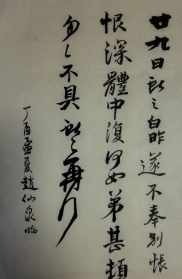 廿九日獻之白昨遂不奉別悵
恨深體中復何如弟甚頓
匆匆不具獻之再拜
丁酉孟夏趙仙泉臨